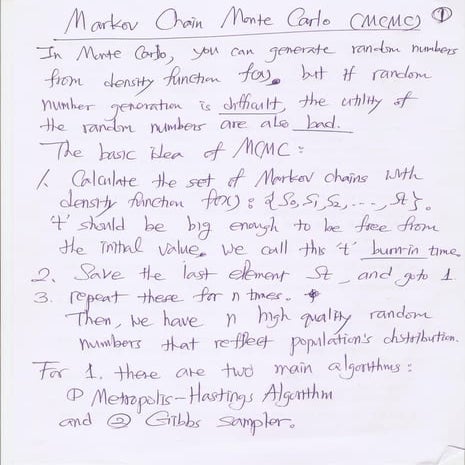 Markov Chain Monte Carlo (MCMC) ①
In Monte Carlo, you can generate random numbers
from density function f(x). but if random
number generation is difficult, the utility of
the random numbers are also bad.
The basic idea of MCMC:
1. Calculate the set of Markov chains with
density function f(x): {S0, S1, S2, ..., St}.
't' should be big enough to be free from
the initial value. we call this 't' burn-in time.
2. Save the last element St, and goto 1
3. repeat these for n times.
Then, we have n high quality random
numbers that reflect population's distribution.
For 1. there are two main algorithms:
① Metropolis-Hastings Algorithm
and ② Gibbs sampler.